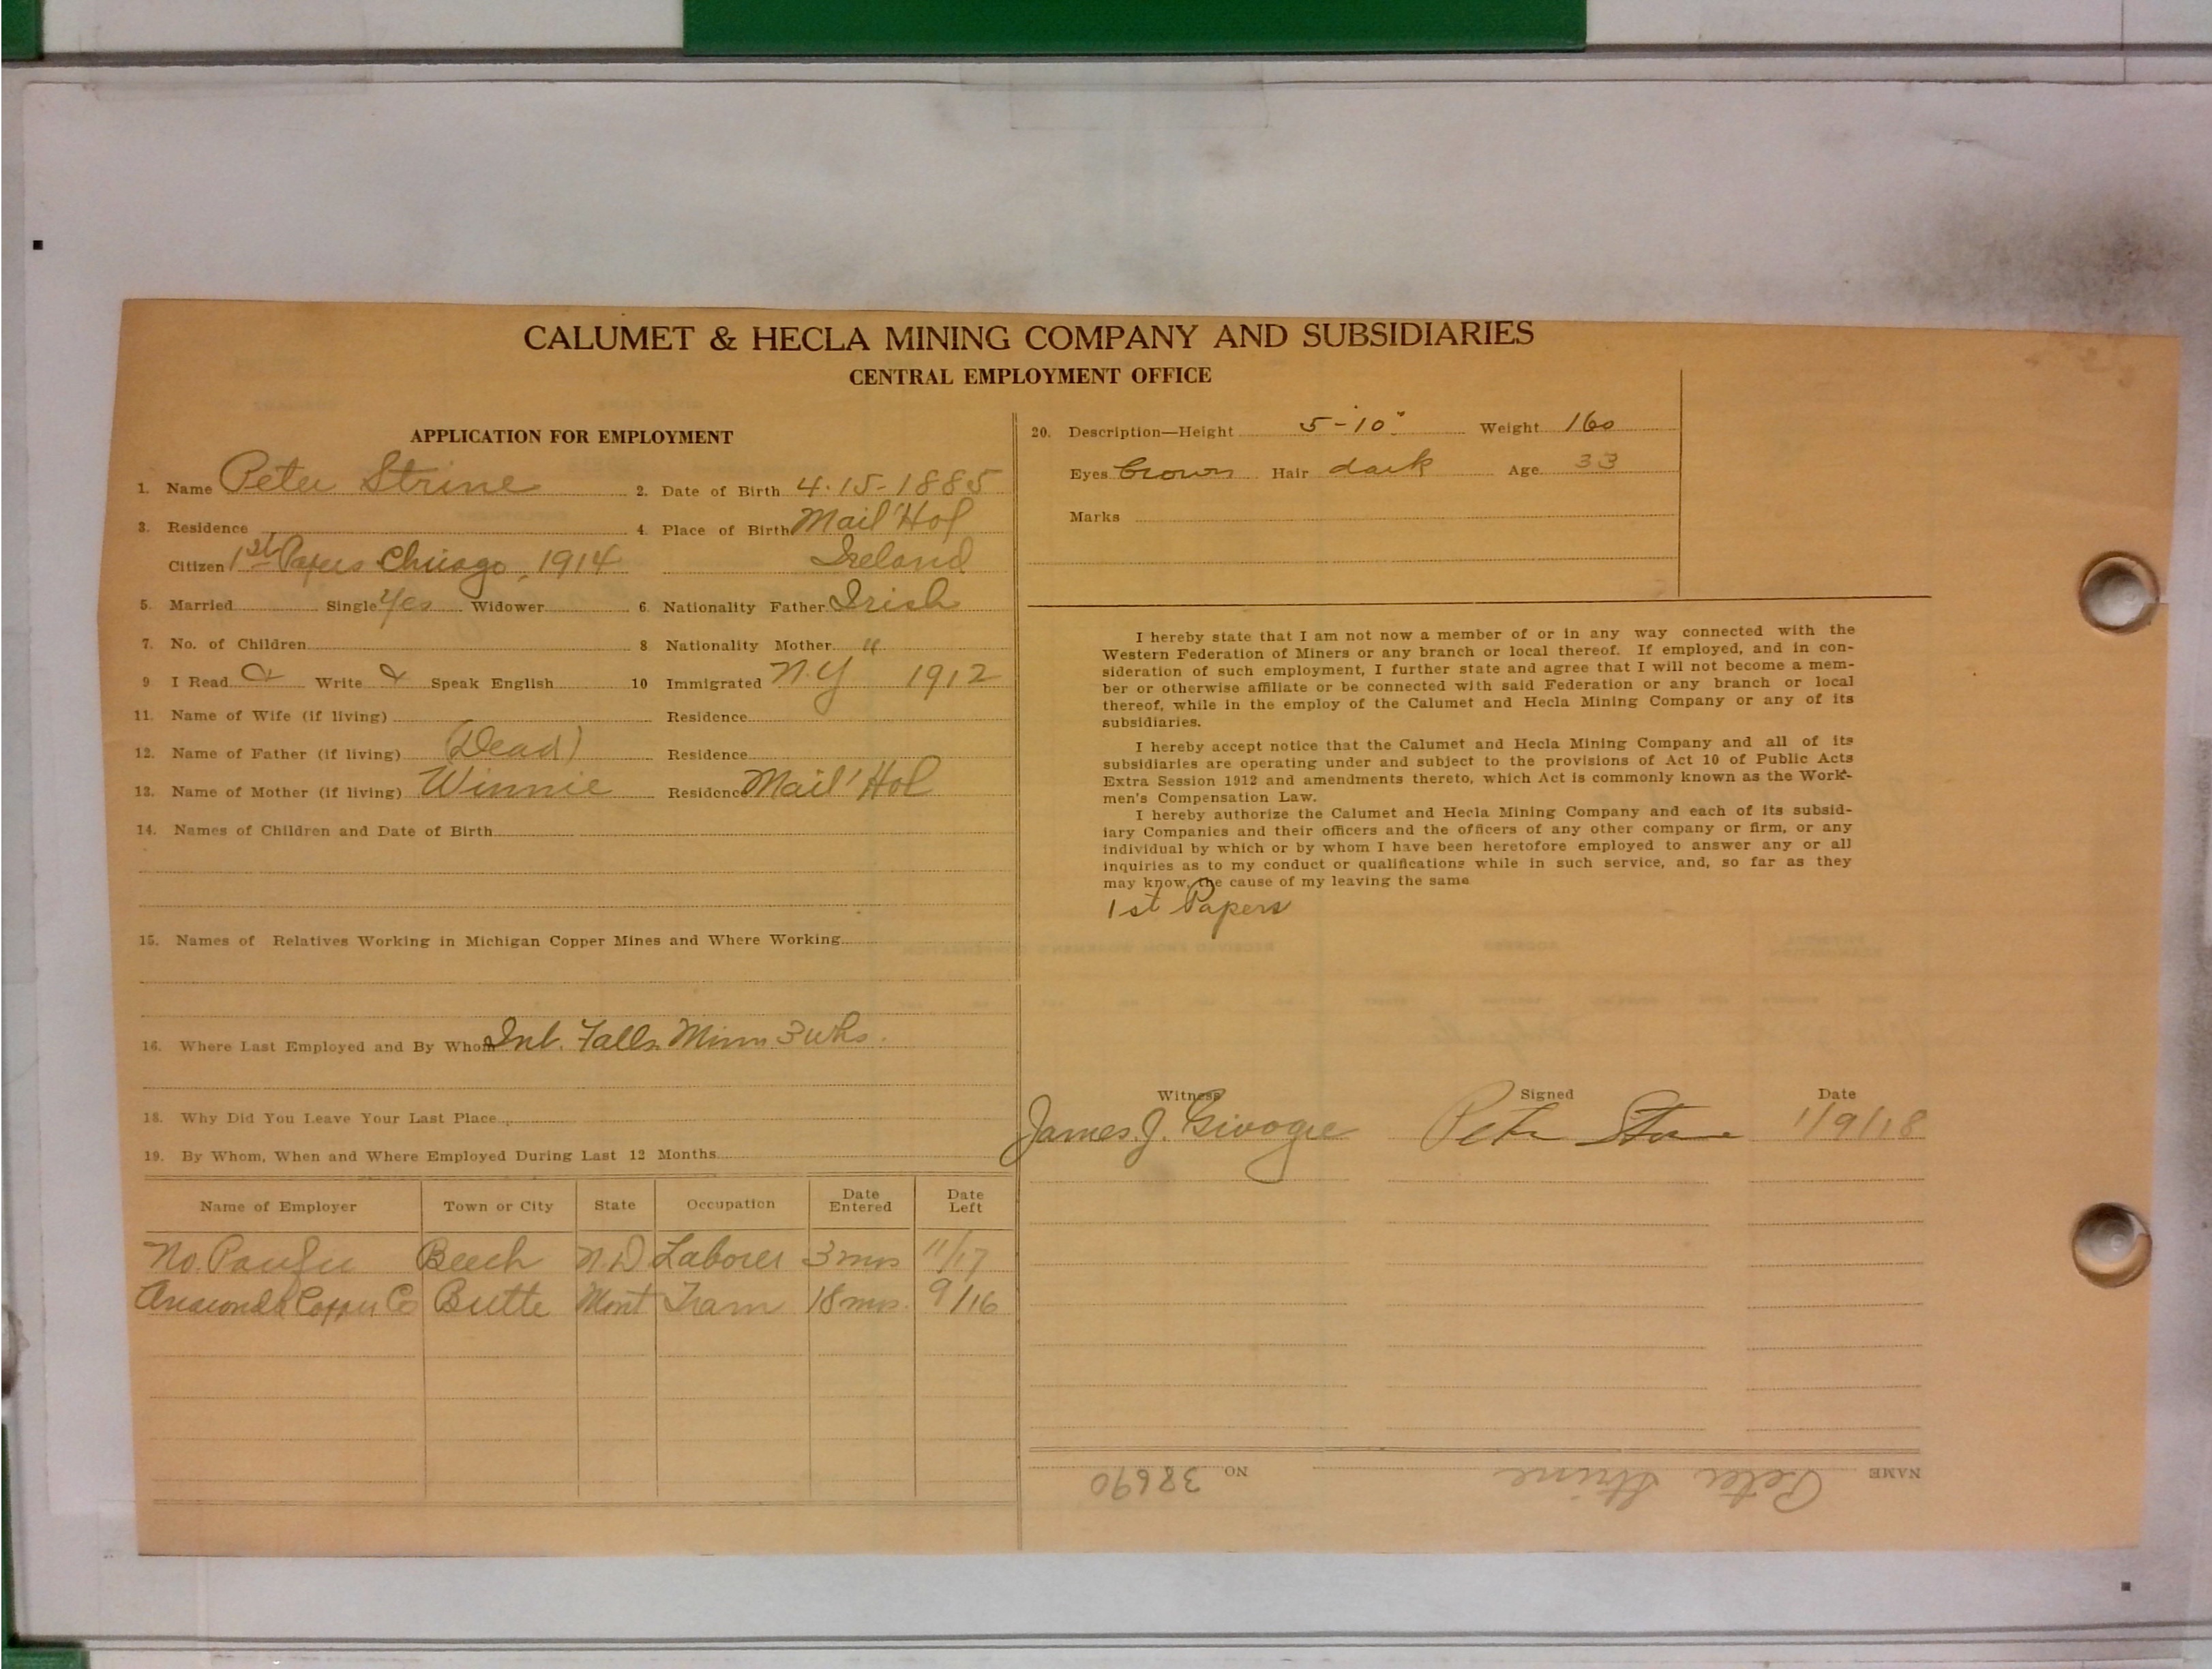 CALUMET & HECLA MINING COMPANY AND SUBSIDIARIES
CENTRAL EMPLOYMENT OFFICE
APPLICATION FOR EMPLOYMENT
1. Name Peter Strine 2. Date of Birth 4-15-1885
3. Residence 4. Place of Birth Mail Hol
Citizen 1st Papers Chicago, 1914 Ireland
5. Married Single Yes Widower 6. Nationality Father Irish
7. No. of Children 8 Nationality Mother "
9 I Read Write Speak English 10 Immigrated N.Y 1912
11. Name of Wife (if living) Residence
12. Name of Father (if living) (Dead) Residence
13. Name of Mother (if living) Winnie Residence Mail Hol
14. Names of Children and Date of Birth
15. Names of Relatives Working in Michigan Copper Mines and Where Working
16. Where Last Employed and By Whom Int. Falls Minn 3 wks.
18. Why Did You Leave Your Last Place
19. By Whom, When and Where Employed During Last 12 Months
Name of Employer Town or City State Occupation Date Entered Date Left
No. Pacific Beech N.D Laborer 3 mos 11/17
Anaconda Copper Co Butte Mont Tram 18 mos. 9/16
20. Description—Height 5-10" Weight 160
Eyes brown Hair dark Age 33
Marks
I hereby state that I am not now a member of or in any way connected with the
Western Federation of Miners or any branch or local thereof. If employed, and in con-
sideration of such employment, I further state and agree that I will not become a mem-
ber or otherwise affiliate or be connected with said Federation or any branch or local
thereof, while in the employ of the Calumet and Hecla Mining Company or any of its
subsidiaries.
I hereby accept notice that the Calumet and Hecla Mining Company and all of its
subsidiaries are operating under and subject to the provisions of Act 10 of Public Acts
Extra Session 1912 and amendments thereto, which Act is commonly known as the Work-
men's Compensation Law.
I hereby authorize the Calumet and Hecla Mining Company and each of its subsid-
iary Companies and their officers and the officers of any other company or firm, or any
individual by which or by whom I have been heretofore employed to answer any or all
inquiries as to my conduct or qualifications while in such service, and, so far as they
may know, the cause of my leaving the same
1st Papers
Witness Signed Date
James J. Peter 1/9/18
NAME Peter Strine NO 38690